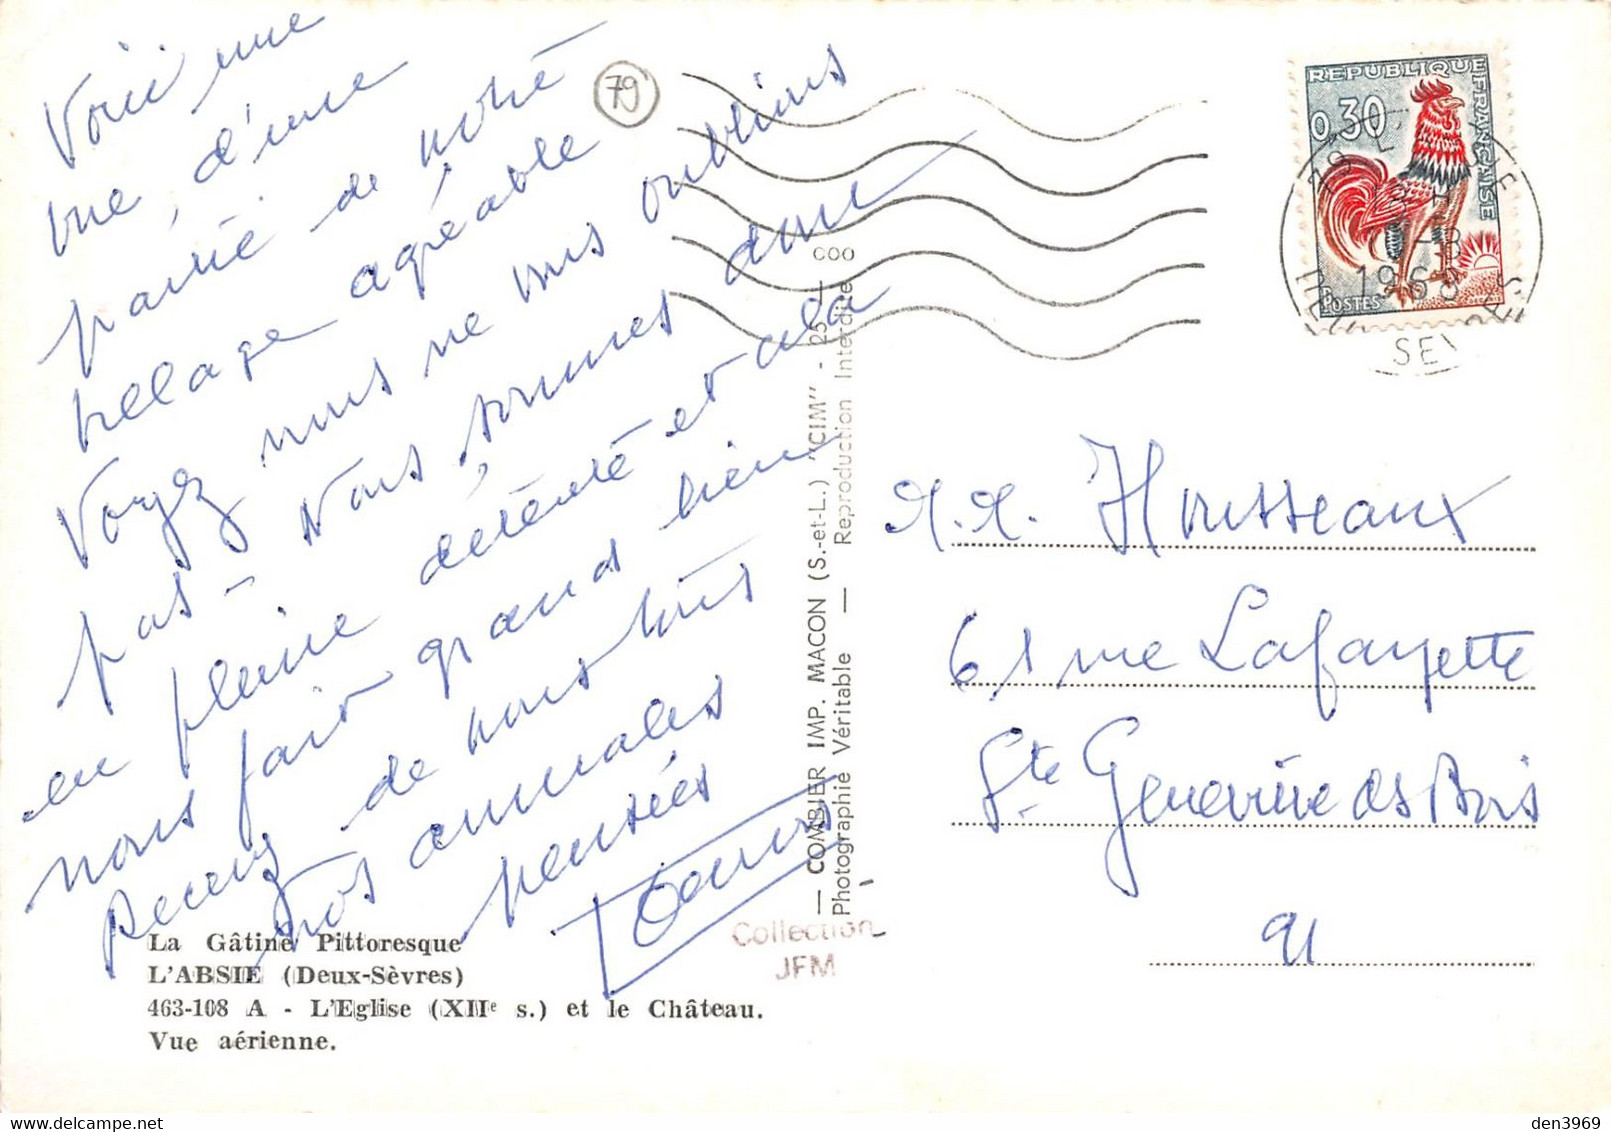 Voici une
vue, d'une
partie de notre
village agréable
Voyez nous ne vous oublions
pas - Nous, sommes donc
en pleine détente et cela
nous fait grand bien
Recevez de nous tous
nos amicales
pensées
79
REPUBLIQUE
FRANÇAISE
0,30
POSTES
1968
— COMBIER IMP. MACON (S.-et-L.) "CIM" - 25 — COO
Photographie Véritable — Reproduction Interdite
M.M. Housseaux
61 rue Lafayette
Ste Geneviève des Bois
91
Collection
JFM
La Gâtine Pittoresque
L'ABSIE (Deux-Sèvres)
463-108 A - L'Eglise (XIIe s.) et le Château.
Vue aérienne.
den3969